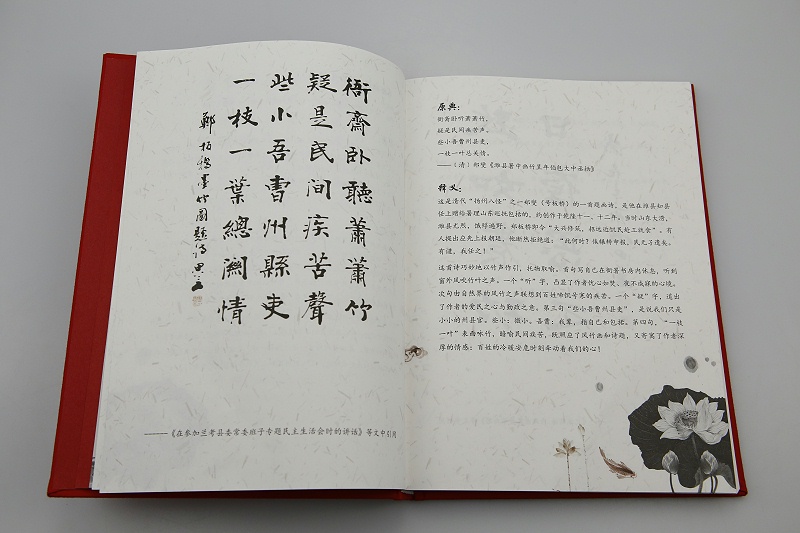 衙齋卧聽蕭蕭竹
疑是民間疾苦聲
些小吾曹州縣吏
一枝一葉總關情
鄭板橋墨竹圖題詩
———《在参加兰考县委常委班子专题民主生活会时的讲话》等文中引用
原典：
衙斋卧听萧萧竹，
疑是民间疾苦声。
些小吾曹州县吏，
一枝一叶总关情。
——（清）郑燮《潍县署中画竹呈年伯包大中丞括》
释义：
这是清代“扬州八怪”之一郑燮（号板桥）的一首题画诗，是他在潍县知县
任上赠给署理山东巡抚包括的，约创作于乾隆十一、十二年。当时山东大潸，
潍县尤烈，饿殍遍野。郑板桥即令“大兴修筑，招远近饥民赴工就食”。有
人提出应先上报朝廷，他断然拒绝道：“此何时？俟辗转申报，民无孑遗矣。
有谴，我任之！”
这首诗巧妙地以竹声作引，托物取喻。首句写自己在衙署书房内休息，听到
窗外风吹竹叶之声。一个“听”字，凸显了作者忧心如焚、夜不成寐的心境。
次句由自然界的风竹之声联想到百姓啼饥号寒的疾苦。一个“疑”字，道出
了作者的爱民之心与勤政之意。第三句“些小吾曹州县吏”，是说我们只是
小小的州县官。些小：微小。吾曹：我辈，指自己和包括。第四句，“一枝
一叶”表面咏竹，暗喻民间疾苦，既照应了风竹画和诗题，又寄寓了作者深
厚的情感：百姓的冷暖安危时刻牵动着我们的心！